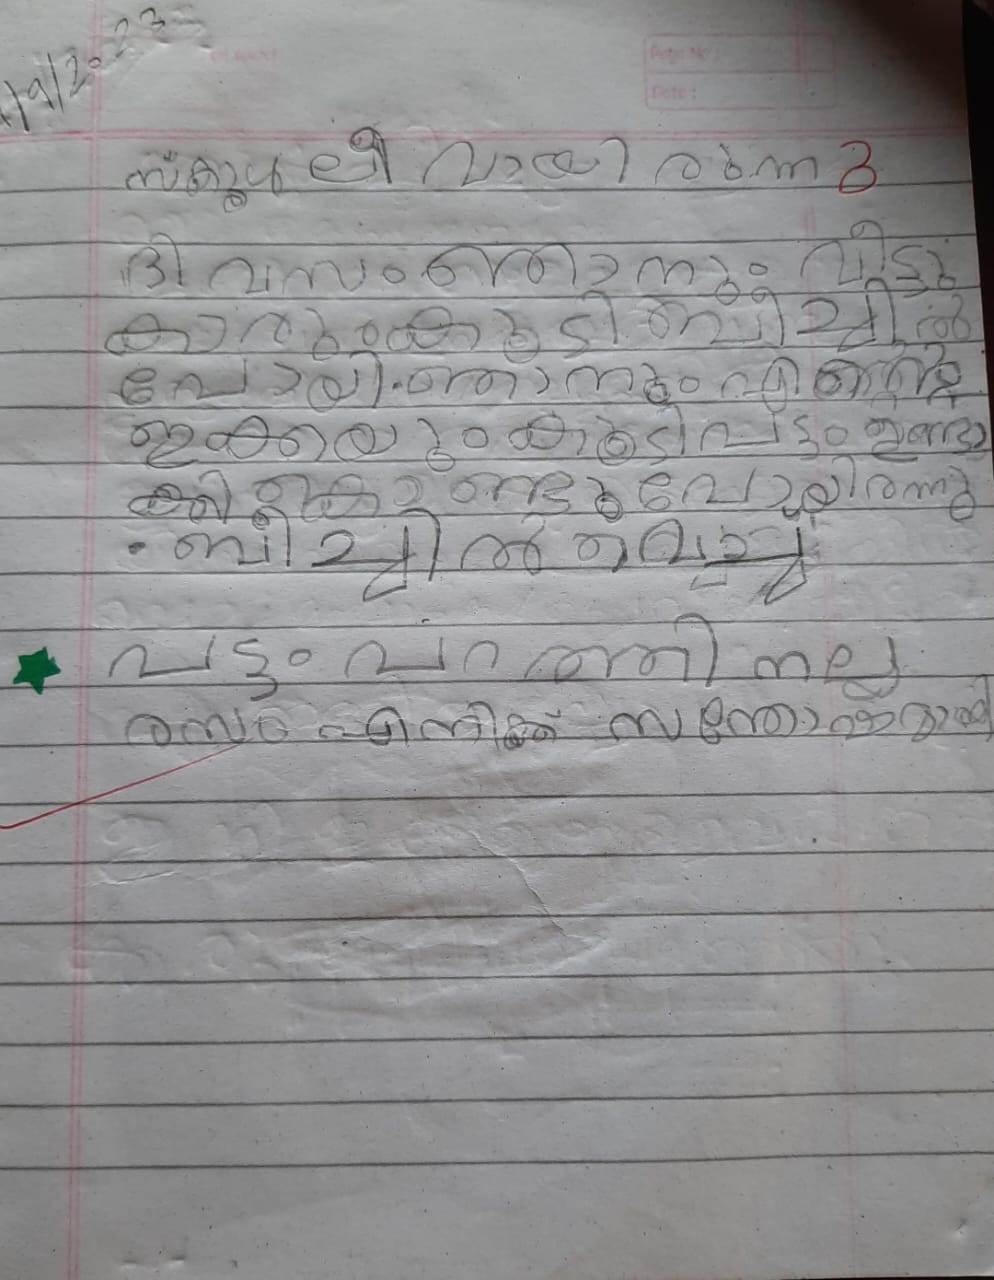 /9/2023
Page No
Date :
സ്കൂൾ ലീവായിരുന്ന 3
ദിവസം ഞാനും വീട്ടു
കാരുംകൂടി ബീച്ചിൽ
പോയി. ഞാനും എന്റെ
ഇക്കയും കൂടി പട്ടം ഉണ്ടാ
ക്കി കൊണ്ടുപോയിരന്നു
. ബീച്ചിൽ വെച്ച്
പട്ടം പറത്തി നല്ല
രസം എനിക്ക് സന്തോഷമായി